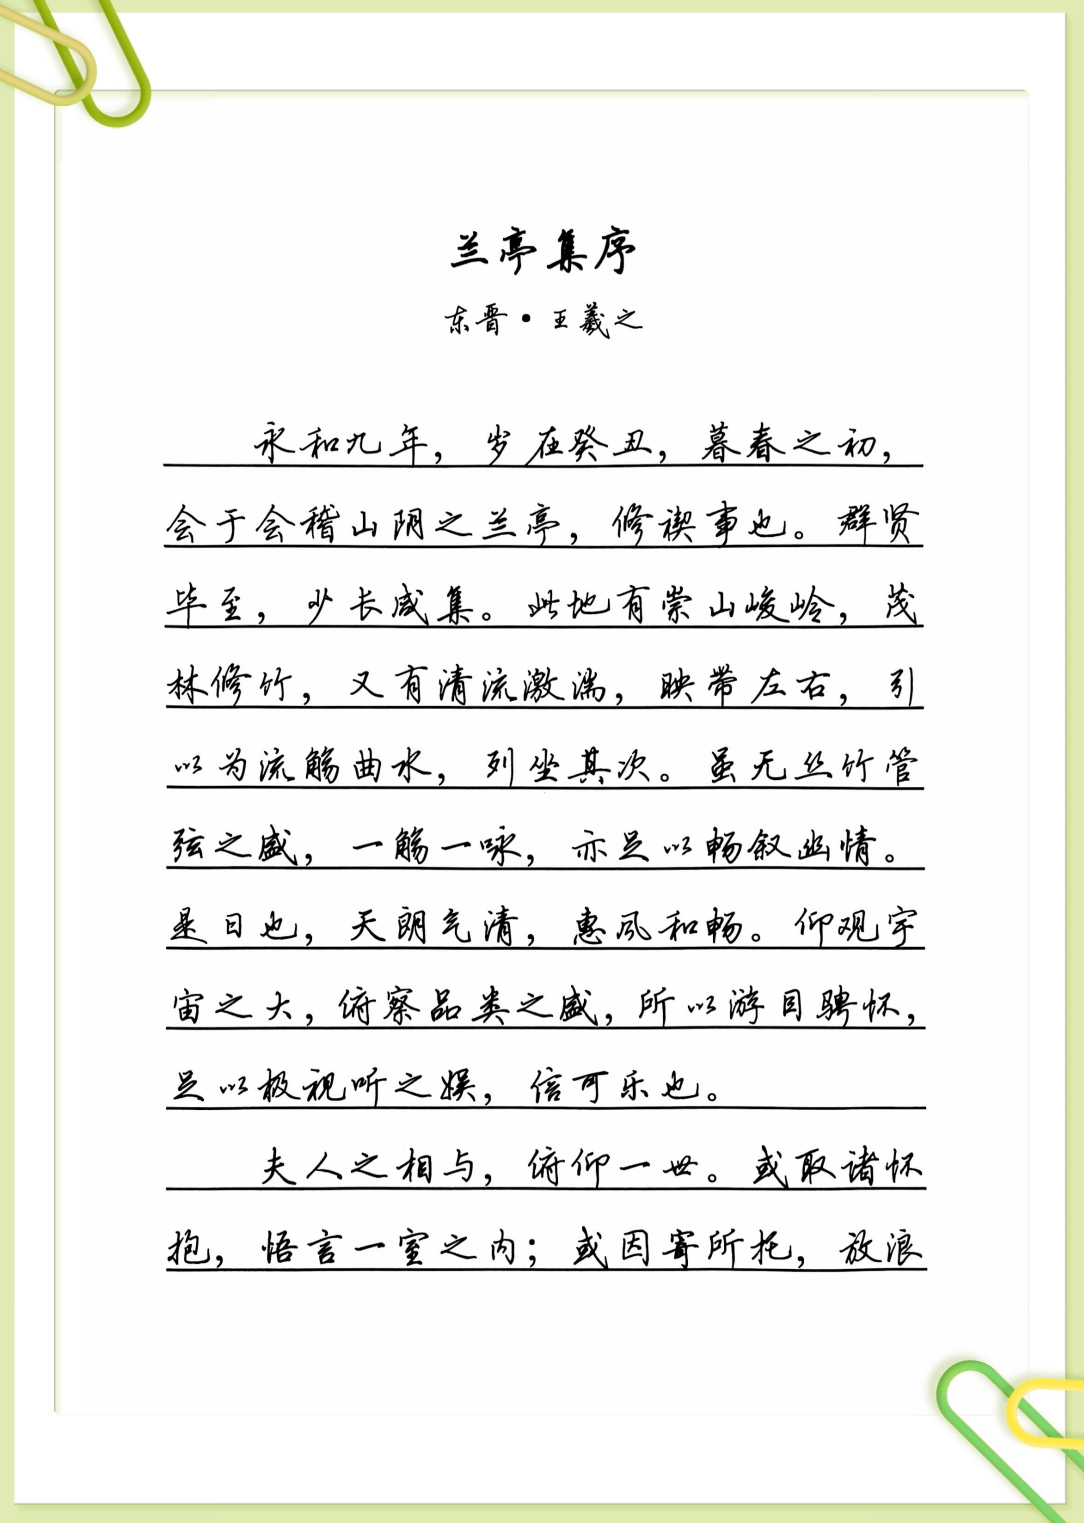 兰亭集序
东晋·王羲之
永和九年，岁在癸丑，暮春之初，
会于会稽山阴之兰亭，修禊事也。群贤
毕至，少长咸集。此地有崇山峻岭，茂
林修竹，又有清流激湍，映带左右，引
以为流觞曲水，列坐其次。虽无丝竹管
弦之盛，一觞一咏，亦足以畅叙幽情。
是日也，天朗气清，惠风和畅。仰观宇
宙之大，俯察品类之盛，所以游目骋怀，
足以极视听之娱，信可乐也。
夫人之相与，俯仰一世。或取诸怀
抱，悟言一室之内；或因寄所托，放浪